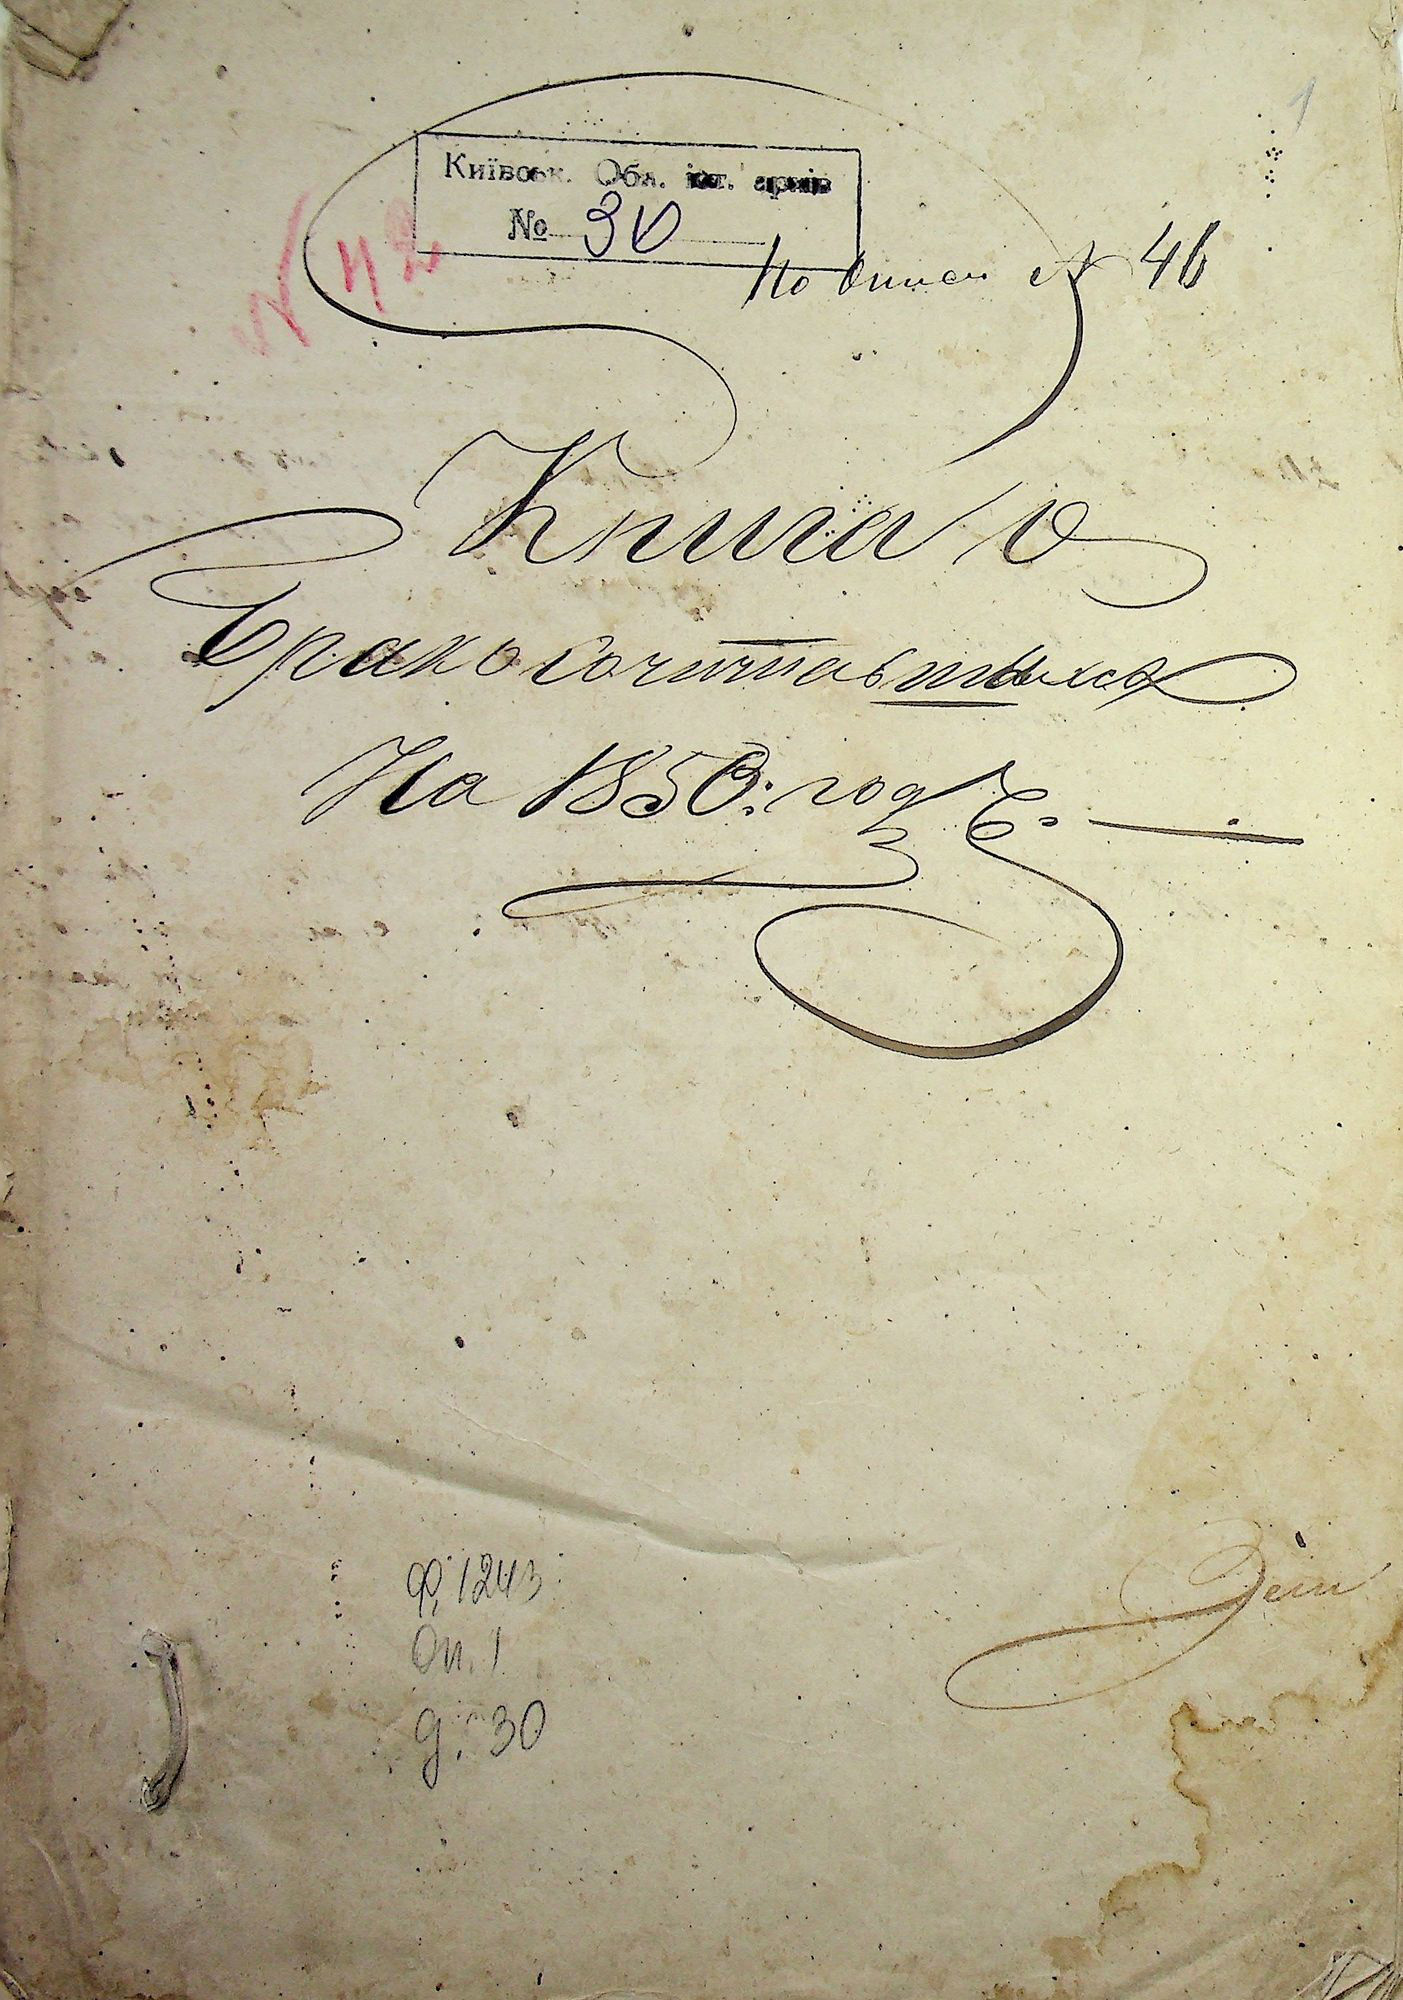 1
Київськ. Обл. іст. архів
№ 30
№ 42
По Описи № 46
Книга о
Бракосочитавшихся
На 1850: годъ.
Ф. 1243
Оп. 1
д. 30